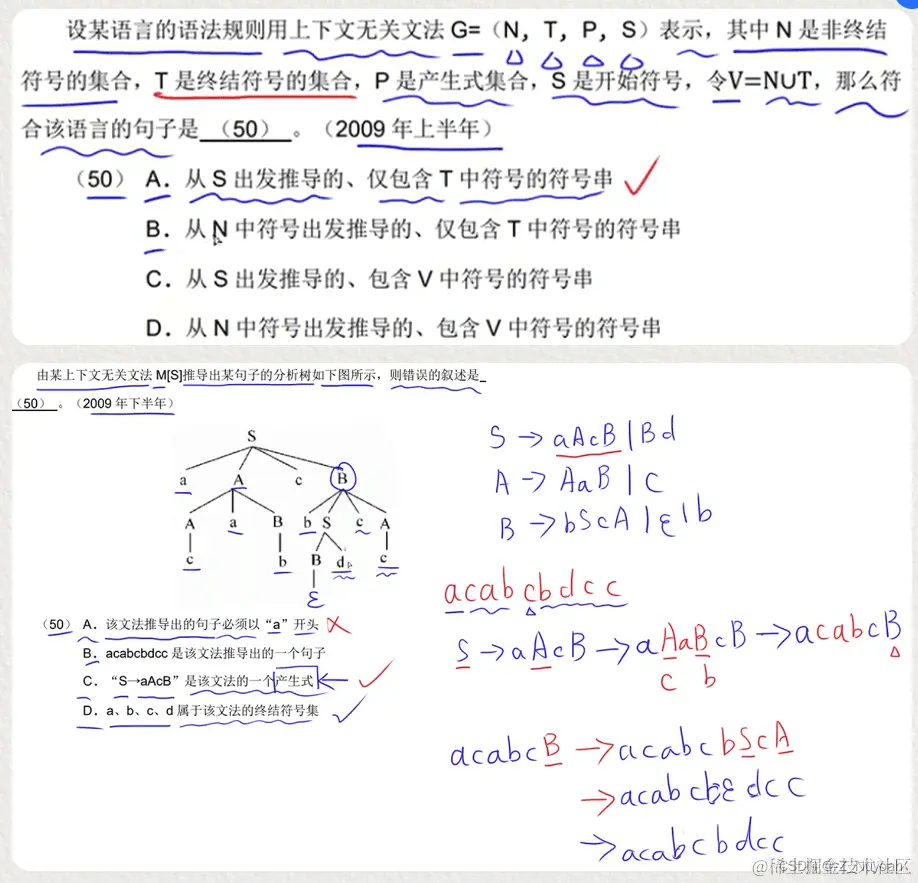 设某语言的语法规则用上下文无关文法 G=（N，T，P，S）表示，其中 N 是非终结
符号的集合，T 是终结符号的集合，P 是产生式集合，S 是开始符号，令V=N∪T，那么符
合该语言的句子是 （50） 。（2009 年上半年）
（50） A．从 S 出发推导的、仅包含 T 中符号的符号串
B．从 N 中符号出发推导的、仅包含 T 中符号的符号串
C．从 S 出发推导的、包含 V 中符号的符号串
D．从 N 中符号出发推导的、包含 V 中符号的符号串
由某上下文无关文法 M[S]推导出某句子的分析树如下图所示，则错误的叙述是_
（50） 。（2009 年下半年）
S
a A c B
A a B b S c A
c b B d c
ε
（50） A．该文法推导出的句子必须以“a”开头
B．acabcbdcc 是该文法推导出的一个句子
C．“S→aAcB”是该文法的一个产生式
D．a、b、c、d 属于该文法的终结符号集
S → aAcB | Bd
A → AaB | c
B → bScA | ε | b
acabcbdcc
S → aAcB → aAaBcB → acabcB
c b
acabcB → acabcbScA
→ acabcbεdcc
→ acabcbdcc
@稀土掘金技术社区